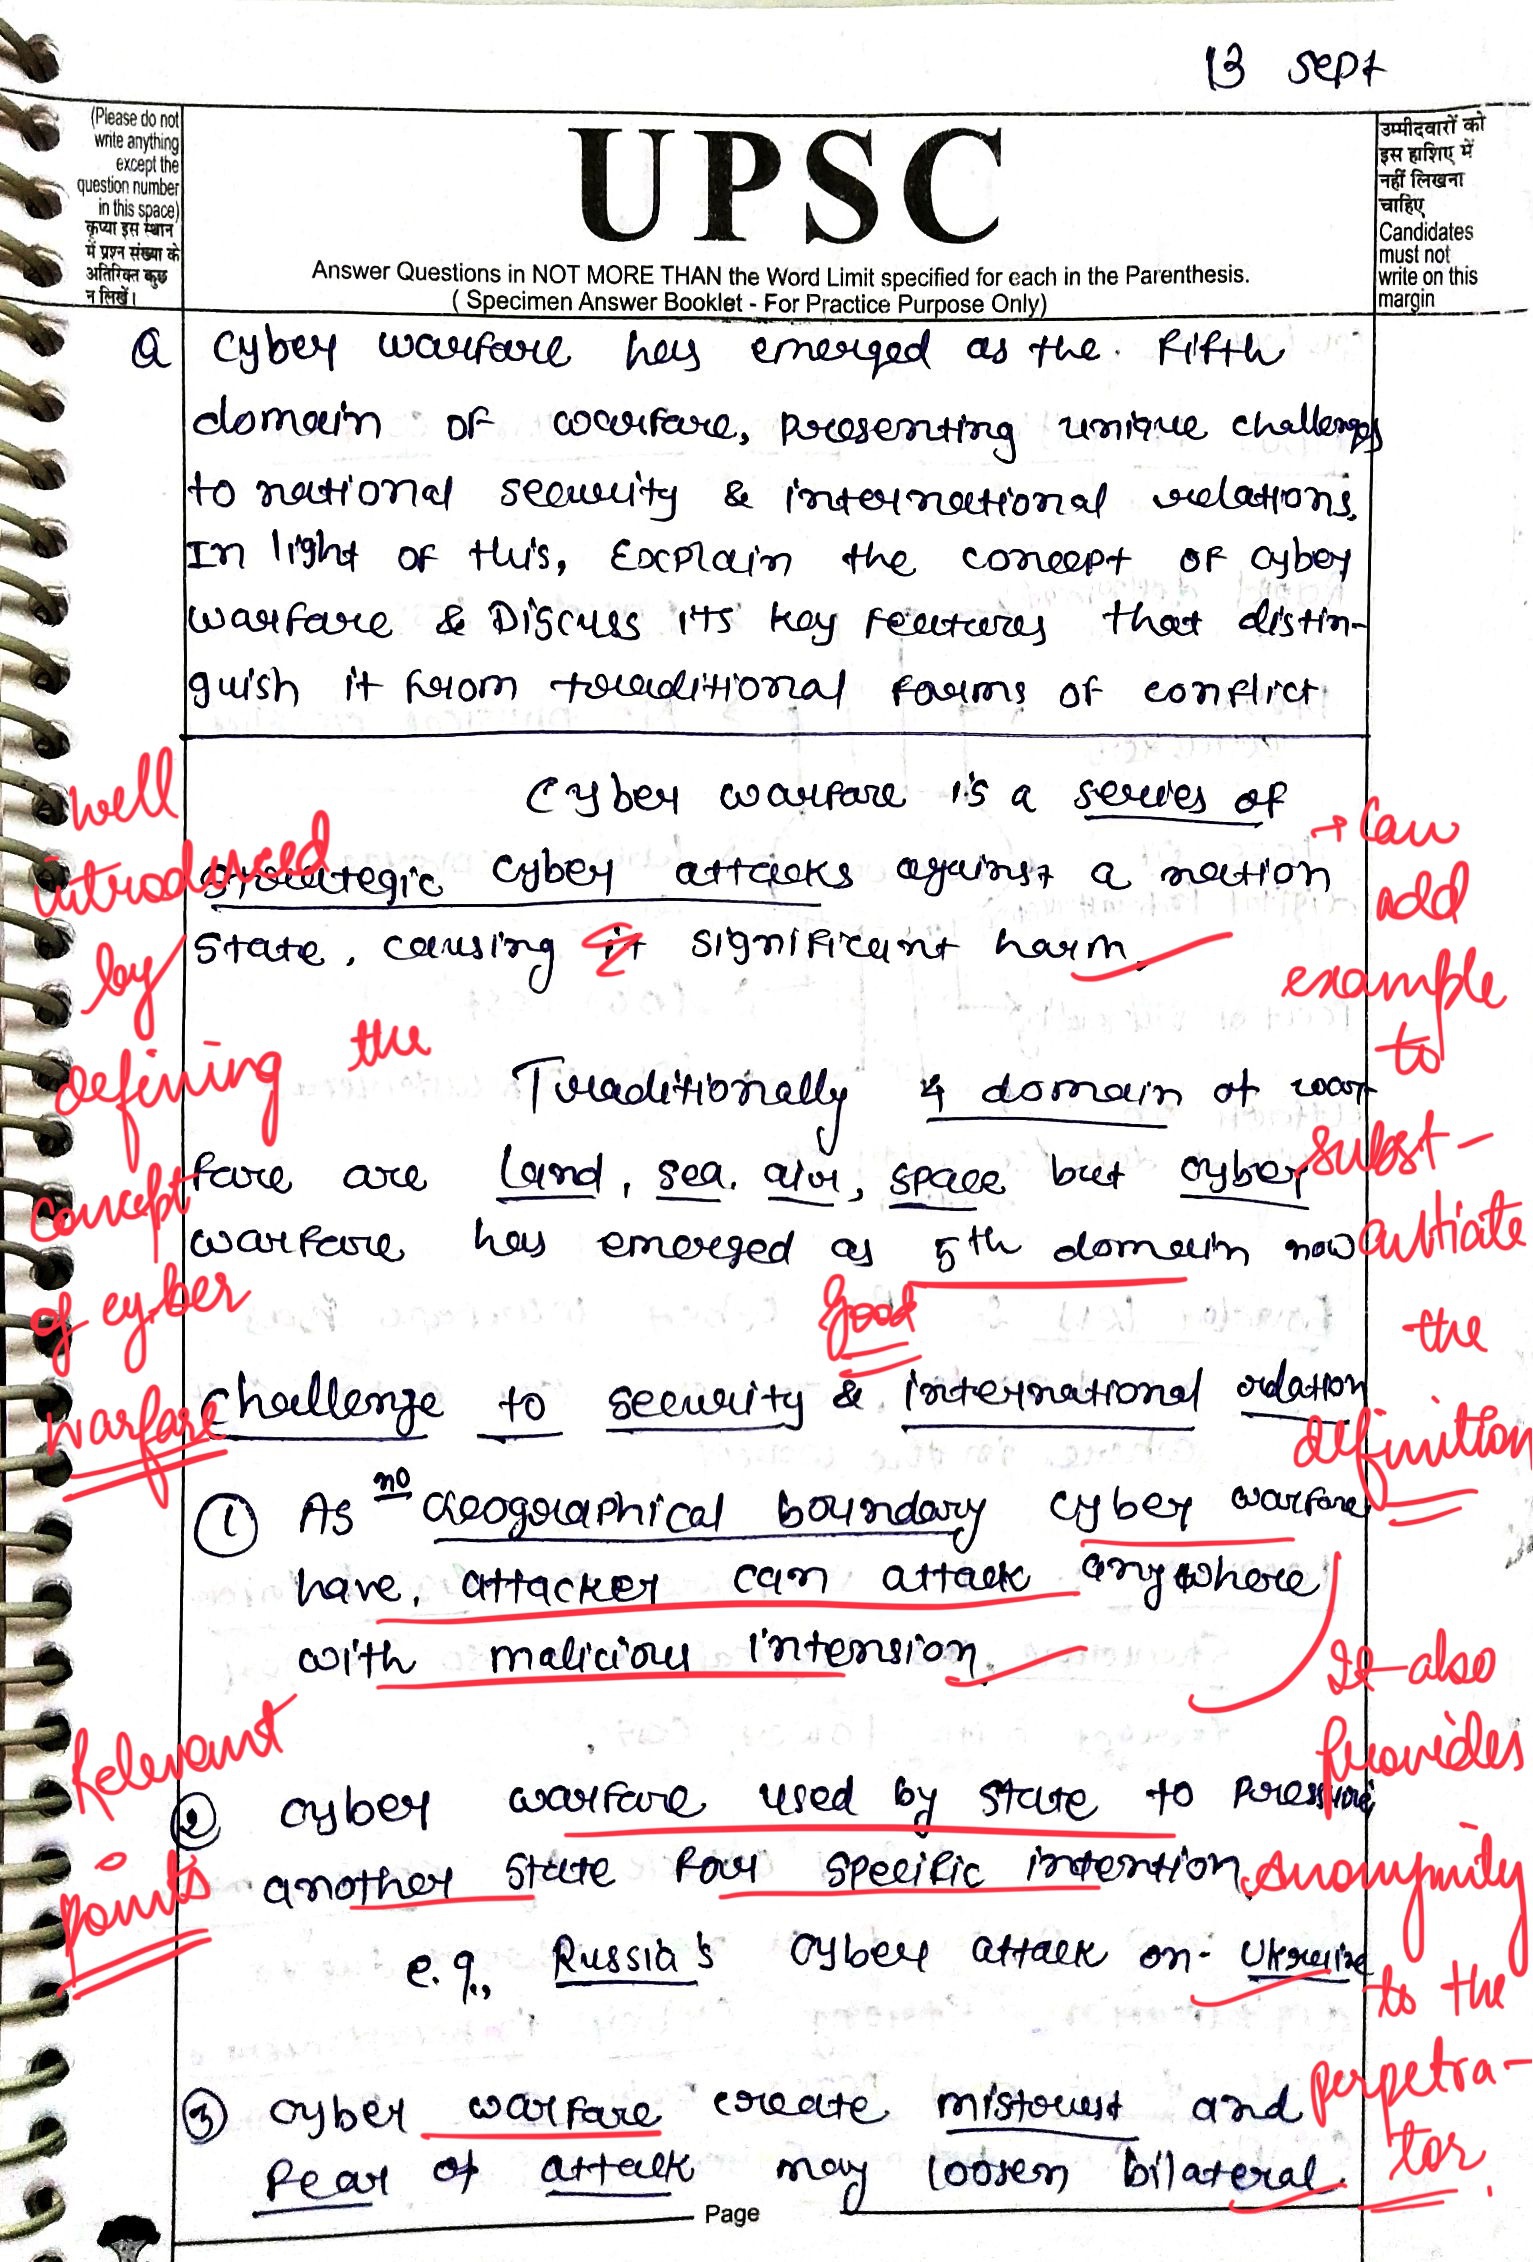 13 Sept
(Please do not
write anything
except the
question number
in this space)
कृप्या इस स्थान
में प्रश्न संख्या के
अतिरिक्त कुछ
न लिखें।
UPSC
Answer Questions in NOT MORE THAN the Word Limit specified for each in the Parenthesis.
( Specimen Answer Booklet - For Practice Purpose Only)
उम्मीदवारों को
इस हाशिए में
नहीं लिखना
चाहिए
Candidates
must not
write on this
margin
Q Cyber warfare has emerged as the fifth
domain of warfare, presenting unique challenges
to national security & international relations.
In light of this, Explain the concept of cyber
warfare & Discuss its key features that distin-
guish it from traditional forms of conflict
Cyber warfare is a series of
strategic cyber attacks against a nation
state, causing it significant harm.
Traditionally 4 domain of war
fare are land, sea, air, space but cyber
warfare has emerged as 5th domain now
Challenge to security & international relation
① As no Geographical boundary cyber warfare
have, attacker can attack anywhere
with malicious intension.
② Cyber warfare used by state to pressure
another state for specific intention.
e.g., Russia's cyber attack on Ukraine
③ cyber warfare create mistrust and
fear of attack may loosen bilateral
well
introduced
by
defining the
concept
of cyber
warfare
Relevant
points
Good
→ Can
add
example
to
subst-
antiate
the
definition
It also
provides
Anonymity
to the
perpetra-
tor.
Page